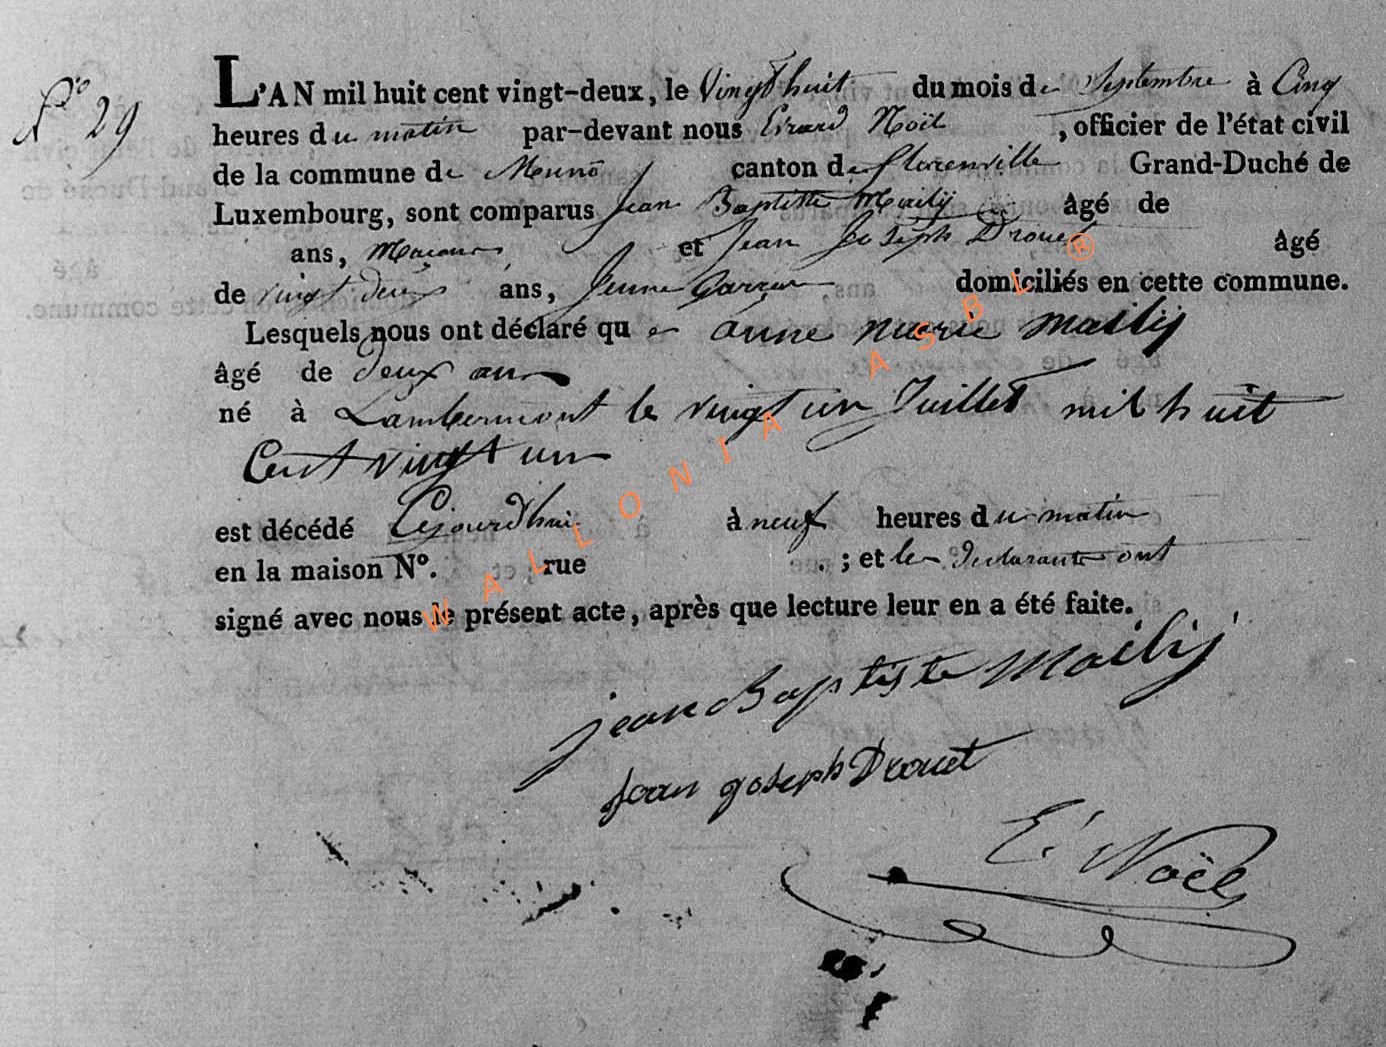 Nº 29
L'AN mil huit cent vingt-deux, le vingt huit du mois de Septembre à Cinq
heures du matin par-devant nous Erard Noël, officier de l'état civil
de la commune de Munô canton de florenville Grand-Duché de
Luxembourg, sont comparus Jean Baptiste Mailij âgé de
ans, Macon et Jean Joseph Drouet âgé
de vingt deux ans, Jeune Garcon domiciliés en cette commune.
Lesquels nous ont déclaré que anne marie mailij
âgé de deux ans
né à Lambermont le vingt un Juillet mil huit
Cent vingt un
est décédé Cejourdhui à neuf heures du matin
en la maison Nº. rue . ; et les declarants ont
signé avec nous le présent acte, après que lecture leur en a été faite.
jean Baptiste Mailij
Jean joseph Drouet
E. Noël
WALLONIA ASBL ®